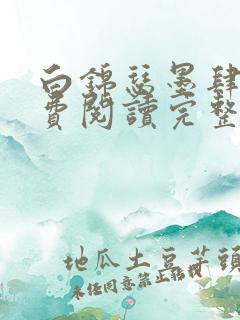 白錦瑟墨肆
費閱讀完整
地瓜土豆芋頭
未经同意禁止转载